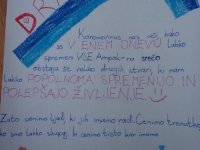 Koronavirus nas uči, kako
se V ENEM DNEVU lahko
spremeni VSE. Ampak – na srečo
obstaja še veliko drugih stvari, ki nam
lahko POPOLNOMA SPREMENIJO IN
POLEPŠAJO ŽIVLJENJE.
Zato cenimo ljudi, ki jih imamo radi. Cenimo trenutke,
ko smo lahko skupaj, in cenimo tisto kar imamo